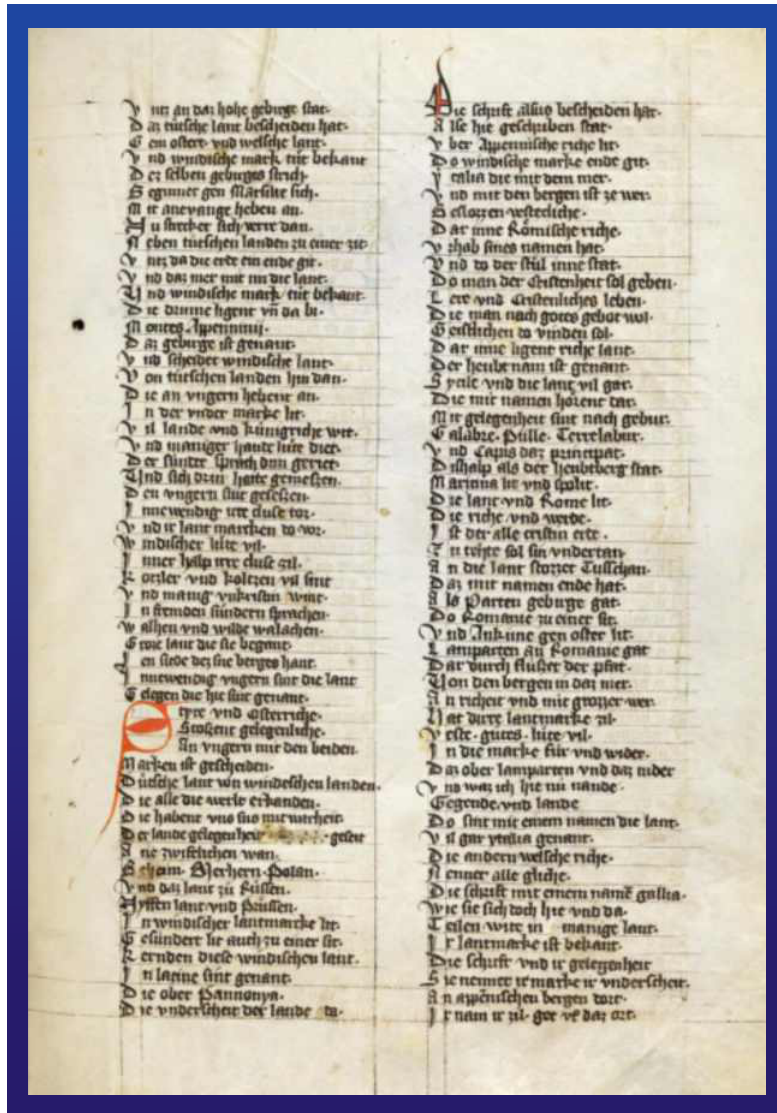 V ntz an daz hohe gebirge stat·
D az tutsche lant bescheiden hat·
G ein ostert· vnd welsche lant·
V nd windische mark tut bekant
D ez selben gebirges strich·
B eginnet gen Marsilie sich·
M it anevange heben an·
N u strecket sich verre dan·
N eben tutschen landen zu einer zit·
V ntz da die erde ein ende git·
V nd daz mer mit im die lant·
V nd windische mark tut bekant·
D ie drinne ligent vn̄ da bi·
M ontes Appennini·
D az gebirge ist genant·
V nd scheidet windische lant·
V on tutschen landen hin dan·
D ie an vngern hebent an·
I n der vnder marke lit·
V il lande vnd kunigriche wit·
V nd maniger hande lute diet·
D er sunder sprach
V nd sich
D en vngern sint gesezzen·
I nnewendig irre cluse tor·
V nd ir lant marcken do vor·
W indischer lute vil·
I nner halp irre cluse zil·
K otzler vnd koltzen vil sint
V nd manig vnkristin kint·
I n fremden sundern sprachen·
W alhen vnd wilde walachen·
G roze lant die sie begant·
sneberges hant·
I nnewendig vngern sint die lant
G elegen die hie sint genant·
Styre vnd Osterriche·
Stozzent gelegenliche·
An vngern mit den beiden·
M arken ist gescheiden·
D utsche lant von windeschen landen·
D ie alle die werlt erkanden·
D ie habent vns sus mit warheit·
D er lande gelegenheit geseit
A ne zwifelichen wan·
B eheim· Merhern· Polan·
V nd daz lant zu Russen·
Nyffen lant vnd Prussen·
I n windischer lantmarke lit·
G esundert lit auch zu einer sit·
K ernden diese windischen lant·
I n latine sint genant·
D ie ober Pannonya·
D ie vnderscheit der lande da·
Die schrift alsus bescheiden hat·
A lse hie geschriben stat·
V ber Appennische riche lit·
D o windische marke ende git·
Y talia die mit dem mer·
V nd mit den bergen ist ze wer·
B eslozzen westerliche·
D ar inne Rômische riche·
V rhab sines namen hat·
V nd do der stůl inne stat·
D o man der Cristenheit sol geben·
L ere vnd Cristenliches leben·
D ie man nach gotes gebot wol·
G eistlichen do vinden sol·
D ar inne ligent riche lant·
D er heubt nam ist genant·
S ycile vnd die lant vil gar·
D ie mit namen horent dar·
M it gelegenheit sint nach gebur·
C alabre· Pulle· Terrelabur·
V nd Capis daz principat·
D ishalp als der heubtberg stat·
M aritima lit vnd spolit·
D ie lant vnd Rome lit·
D ie riche vnd werde·
I st der alle cristin erde·
I n rehte sol sin vndertan·
A n die lant stozzet Tusschan·
D az mit namen ende hat·
A ls Parten gebirge gat·
D o Romanie zu einer sit·
V nd Ankune gen oster lit·
L amparten an Romanie gat
D ar durch fluzzet der pfat·
V on den bergen in daz mer·
A n richeit vnd mit grozzer wer·
H at dirre lantmarke zil·
V este· gutes· lute vil·
I n die marke fur vnd wider·
D az ober lamparten vnd daz nider
V nd waz ich hie nu nande·
G egende· vnd lande
D o sint mit einem namen die lant·
V il gar ytalia genant·
D ie andern welsche riche·
N ennet alle gliche·
D ie schrift mit einem namē gallia·
W ie sie sich doch hie vnd da·
T eilen wite in manige lant·
I r lantmarke ist bekant·
D ie schrift vnd ir gelegenheit
S ie nennet ir marke ir vnderscheit·
A n appēnischen bergen dort·
I r nam ir zil· get vf daz ort·